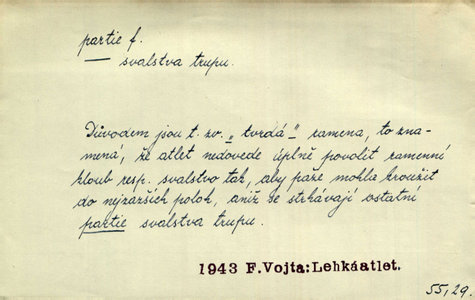 partie f.
svalstva trupu.
Důvodem jsou t. zv. „tvrdá" ramena, to zna-
mená, že atlet nedovede úplně povolit ramenní
kloub resp. svalstvo tak, aby paže mohla kroužit
do nejzazších poloh, aniž se strhávají ostatní
partie svalstva trupu.
1943 F.Vojta:Lehkáatlet.
55,29.